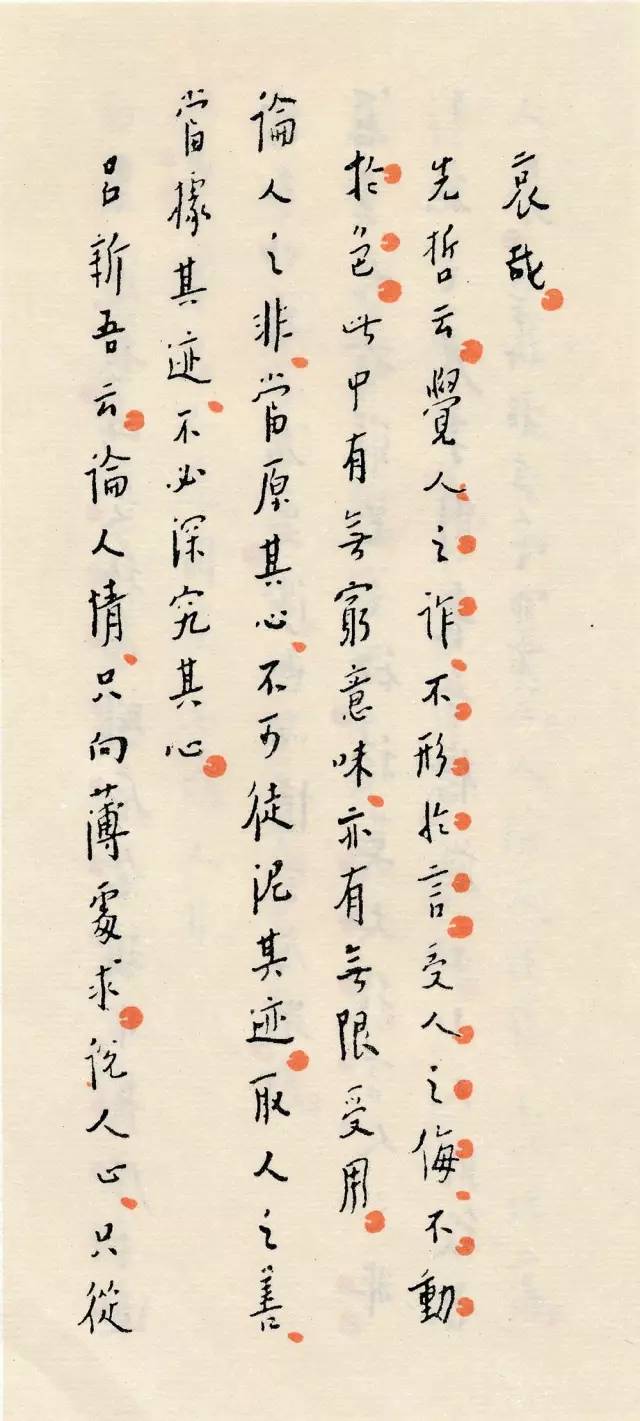 哀哉
先哲云覺人之詐不形於言受人之侮不動
於色此中有無窮意味亦有無限受用
論人之非當原其心不可徒泥其迹取人之善
當據其迹不必深究其心
呂新吾云論人情只向薄處求說人心只從